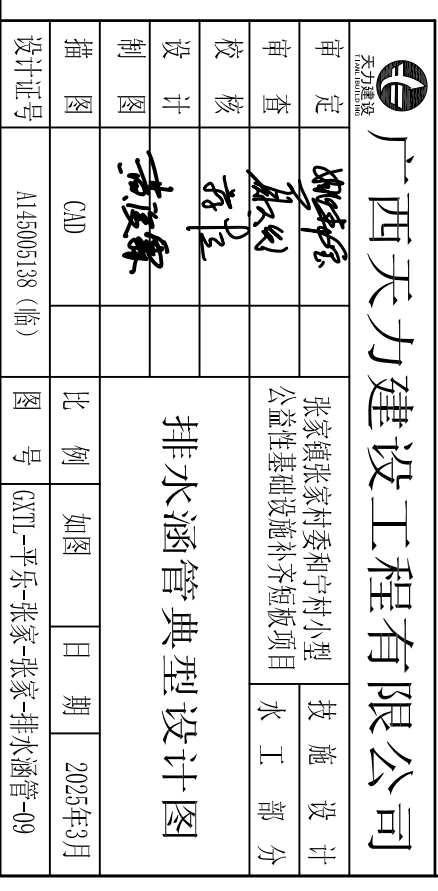 天力建设
TIANLIBUILDING
广西天力建设工程有限公司
审 定
张家镇张家村委和宁村小型
公益性基础设施补齐短板项目
技 施 设 计
审 查
水 工 部 分
校 核
排水涵管典型设计图
设 计
制 图
描 图
CAD
比 例
如图
日 期
2025年3月
设计证号
A145005138（临）
图 号
GXTL-平乐-张家-张家-排水涵管-09